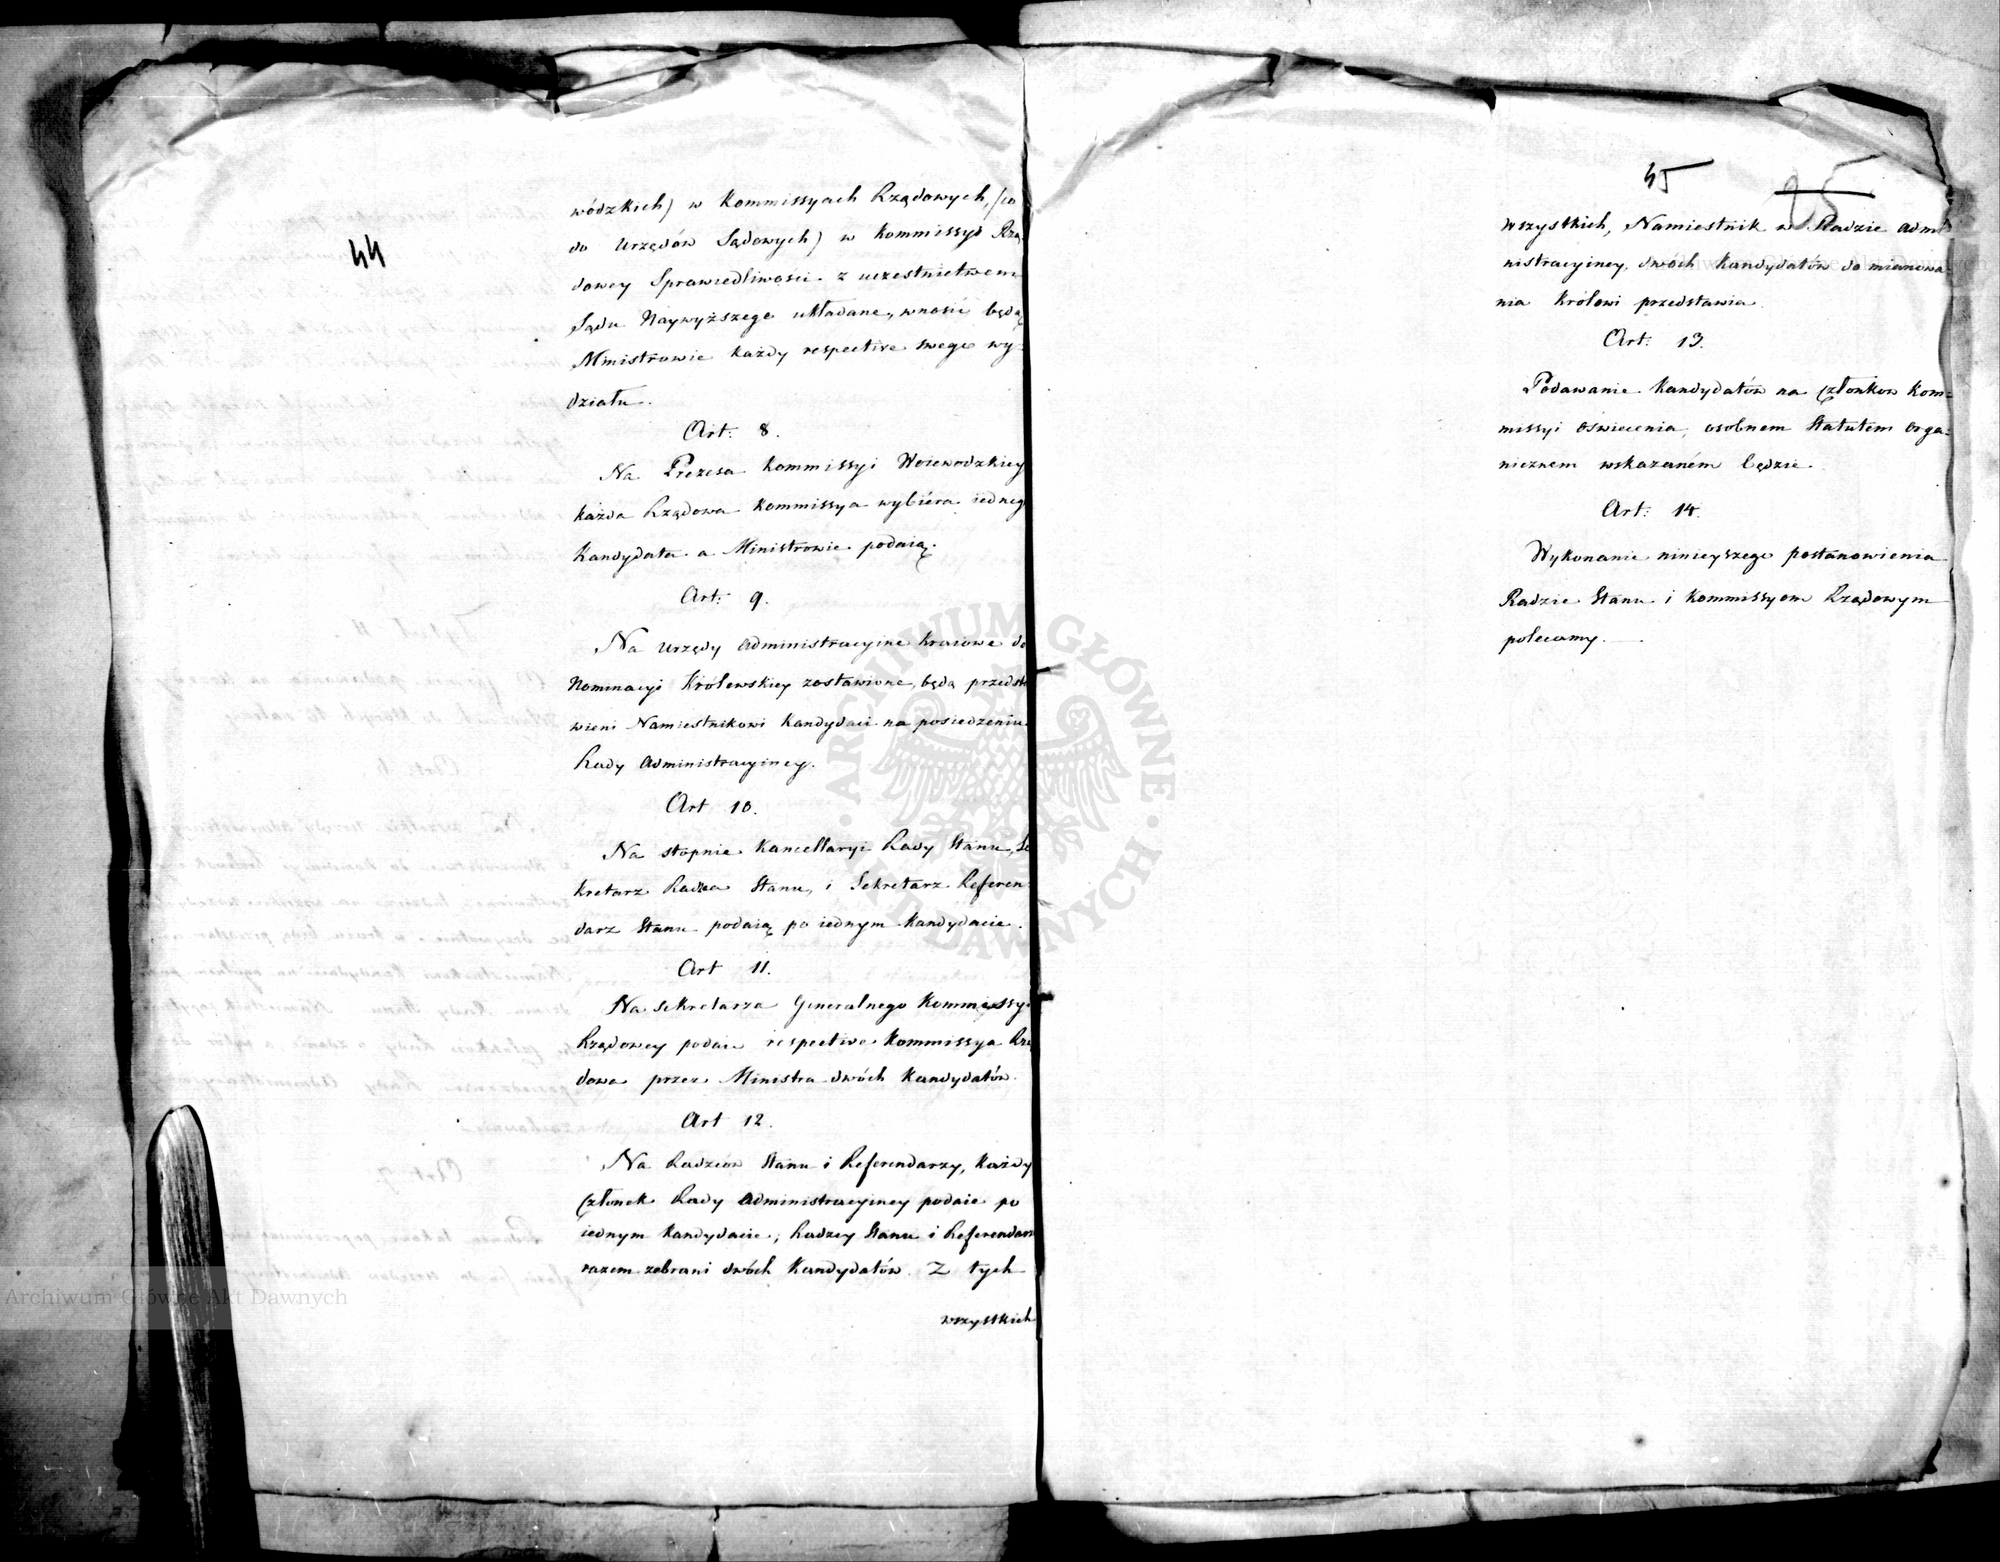 44
wódzkich) w Kommissyach Rządowych, (co
do Urzędów Sądowych) w Kommissyi Rzą-
dowey Sprawiedliwości z uczestnictwem
Sądu Naywyższego układane, wnosić będą
Ministrowie każdy respective swego wy-
działu.
Art: 8.
Na Prezesa Kommissyi Woiewodzkiey
każda Rządowa Kommissya wybiéra iednego
Kandydata a Ministrowie podaią.
Art: 9.
Na Urzędy Administracyine kraiowe do
Nominacyi Królewskiey zostawione, będą przedsta
wieni Namiestnikowi Kandydaci na posiedzeniu
Rady Administracyiney.
Art 10.
Na stopnie Kancellaryi Rady Stanu, Se
kretarz Radzca Stanu, i Sekretarz Referen
darz Stanu podaią po iednym Kandydacie.
Art 11.
Na Sekretarza Generalnego Kommissyi
Rządowey podaie respective Kommissya Rzą
dowa przez Ministra dwóch Kandydatów.
Art 12.
Na Radzców Stanu i Referendarzy, Każdy
Członek Rady Administracyiney podaie po
iednym Kandydacie; Radzcy Stanu i Referendarze
razem zebrani dwóch Kandydatów. Z tych
wszystkich
45
85
wszystkich, Namiestnik w Radzie Admi
nistracyiney, dwóch Kandydatów do mianowa-
nia Królowi przedstawia.
Art: 13.
Podawanie Kandydatów na Członków Kom-
missyi Oświecenia, osobnem Statutem orga-
nicznem wskazaném będzie.
Art: 14.
Wykonanie ninieyszego postanowienia
Radzie Stanu i Kommissyom Rządowym
polecamy.
ARCHIWUM GŁÓWNE AKT DAWNYCH
Archiwum Główne Akt Dawnych
Archiwum Główne Akt Dawnych